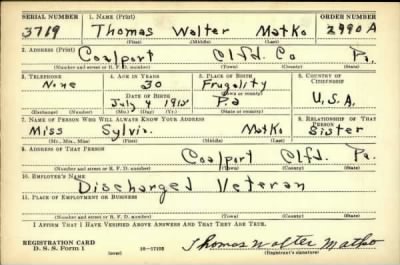 SERIAL NUMBER 1. NAME (Print) ORDER NUMBER
3719 Thomas Walter Matko 2990 A
(First) (Middle) (Last)
2. ADDRESS (Print)
Coalport Clfd. Co Pa.
(Number and street or R. F. D. number) (Town) (County) (State)
3. TELEPHONE 4. AGE IN YEARS 5. PLACE OF BIRTH 6. COUNTRY OF CITIZENSHIP
None 30 Frugality
DATE OF BIRTH (Town or county)
July 4 1912 Pa U.S.A.
(Exchange) (Number) (Mo.) (Day) (Yr.) (State or country)
7. NAME OF PERSON WHO WILL ALWAYS KNOW YOUR ADDRESS 8. RELATIONSHIP OF THAT PERSON
Miss Sylvia Matko Sister
(Mr., Mrs., Miss) (First) (Middle) (Last)
9. ADDRESS OF THAT PERSON
Coalport Clfd. Pa.
(Number and street or R. F. D. number) (Town) (County) (State)
10. EMPLOYER'S NAME
Discharged Veteran
11. PLACE OF EMPLOYMENT OR BUSINESS
(Number and street or R. F. D. number) (Town) (County) (State)
I AFFIRM THAT I HAVE VERIFIED ABOVE ANSWERS AND THAT THEY ARE TRUE.
REGISTRATION CARD
D. S. S. Form 1 (over) 16-17105 Thomas Walter Matko
(Registrant's signature)